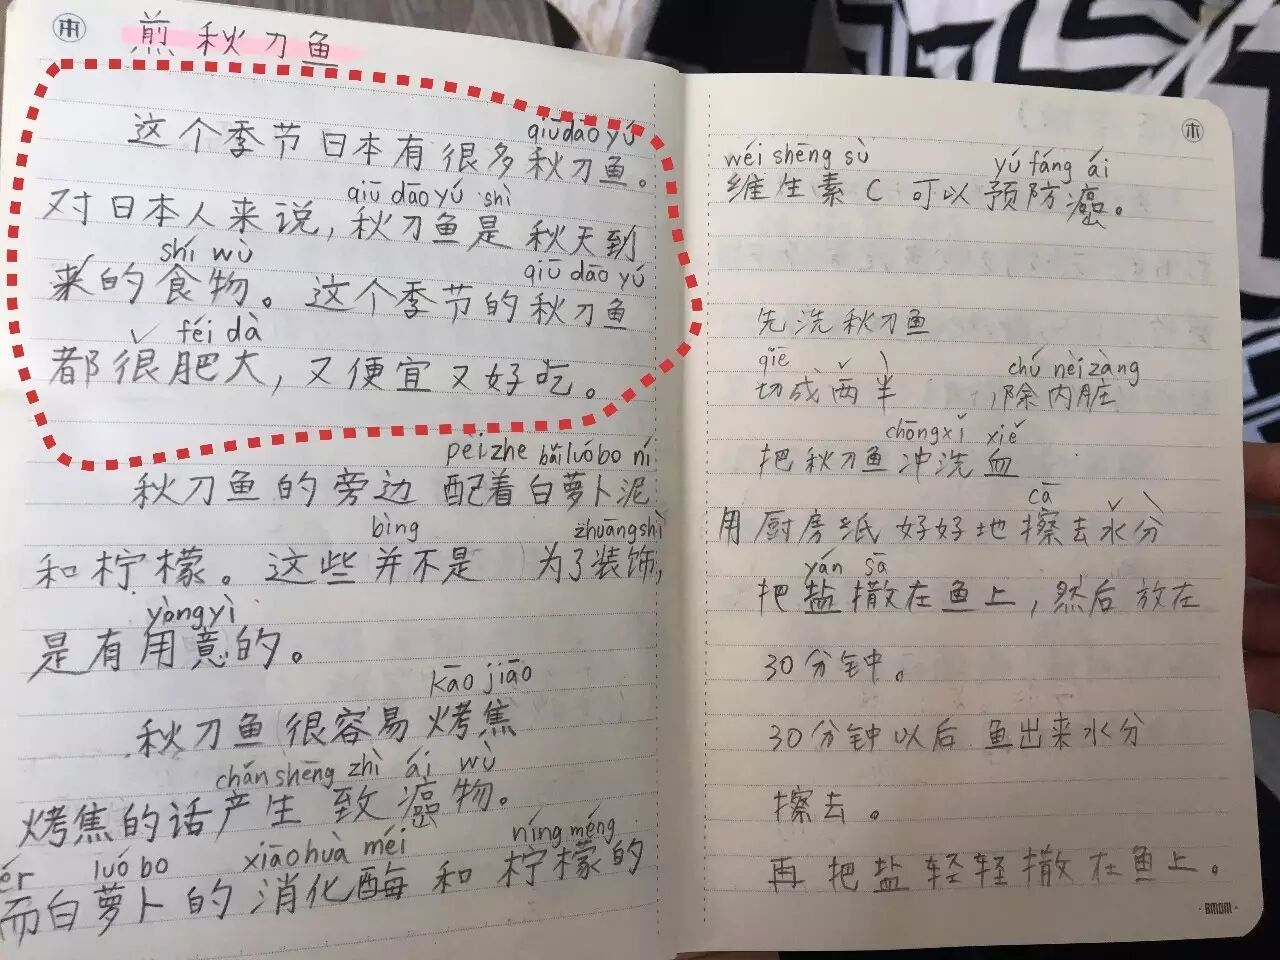 本
煎秋刀鱼
qiūdāo yú
这个季节日本有很多秋刀鱼。
qiū dāo yú shì
对日本人来说,秋刀鱼是秋天到
shí wù qiū dāo yú
来的食物。这个季节的秋刀鱼
féi dà
都很肥大,又便宜又好吃。
pèi zhe bái luó bo ní
秋刀鱼的旁边 配着白萝卜泥
bìng zhuāng shì
和柠檬。这些并不是 为了装饰,
yòng yì
是有用意的。
kāo jiāo
秋刀鱼很容易烤焦
chán shēng zhì ái wù
烤焦的话产生致癌物。
ér luó bo xiāo huà méi níng méng
而白萝卜的消化酶和柠檬的
本
wéi shēng sù yú fáng ái
维生素 C 可以预防癌。
先洗秋刀鱼
qiē chú nèi zàng
切成两半 ,除内脏
chōng xǐ xiě
把秋刀鱼冲洗血
cā
用厨房纸好好地擦去水分
yán sā
把盐撒在鱼上,然后放在
30分钟。
30分钟以后 鱼出来水分
擦去。
再把盐轻轻撒在鱼上。